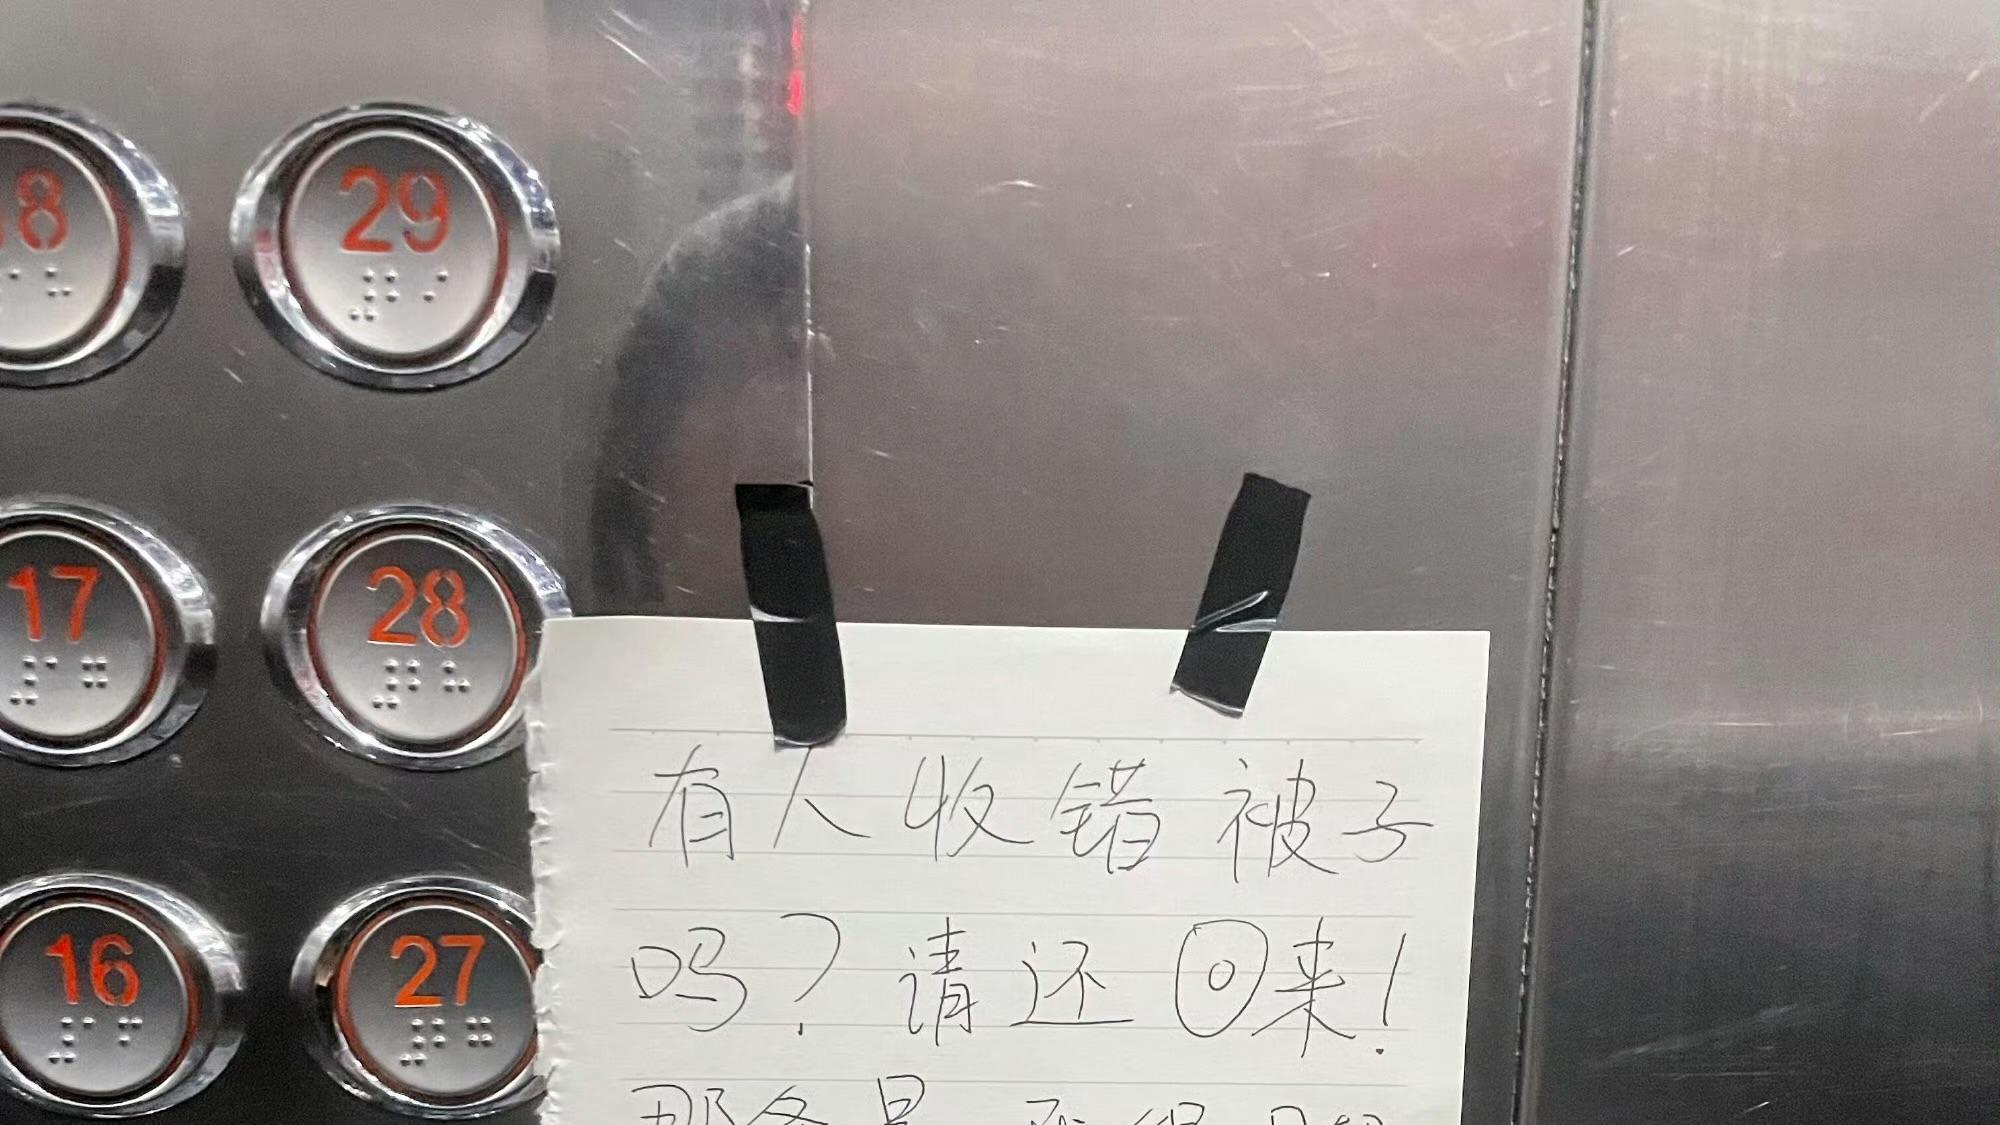 29
17
28
16
27
有人收错被子
吗?请还回来!